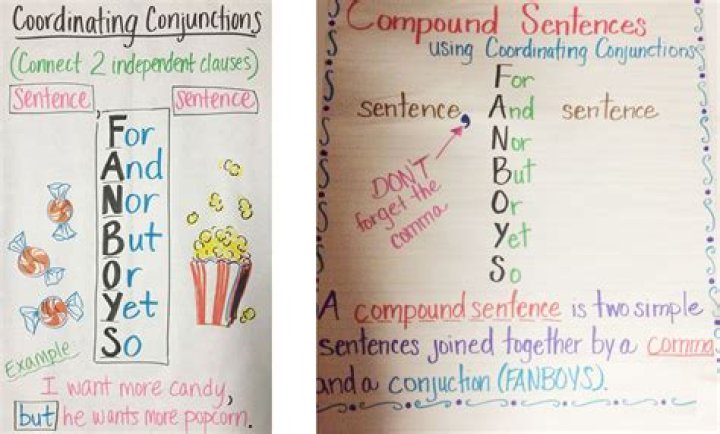 Coordinating Conjunctions
(Connect 2 independent clauses)
Sentence, sentence
For
And
Nor
But
Or
Yet
So
Example
I want more candy,
but he wants more popcorn.
Compound Sentences
using Coordinating Conjunctions
For
sentence, And sentence
Nor
But
Or
Yet
So
DON'T
forget the
comma
A compound sentence is two simple
sentences joined together by a comma
and a conjuction (FANBOYS).